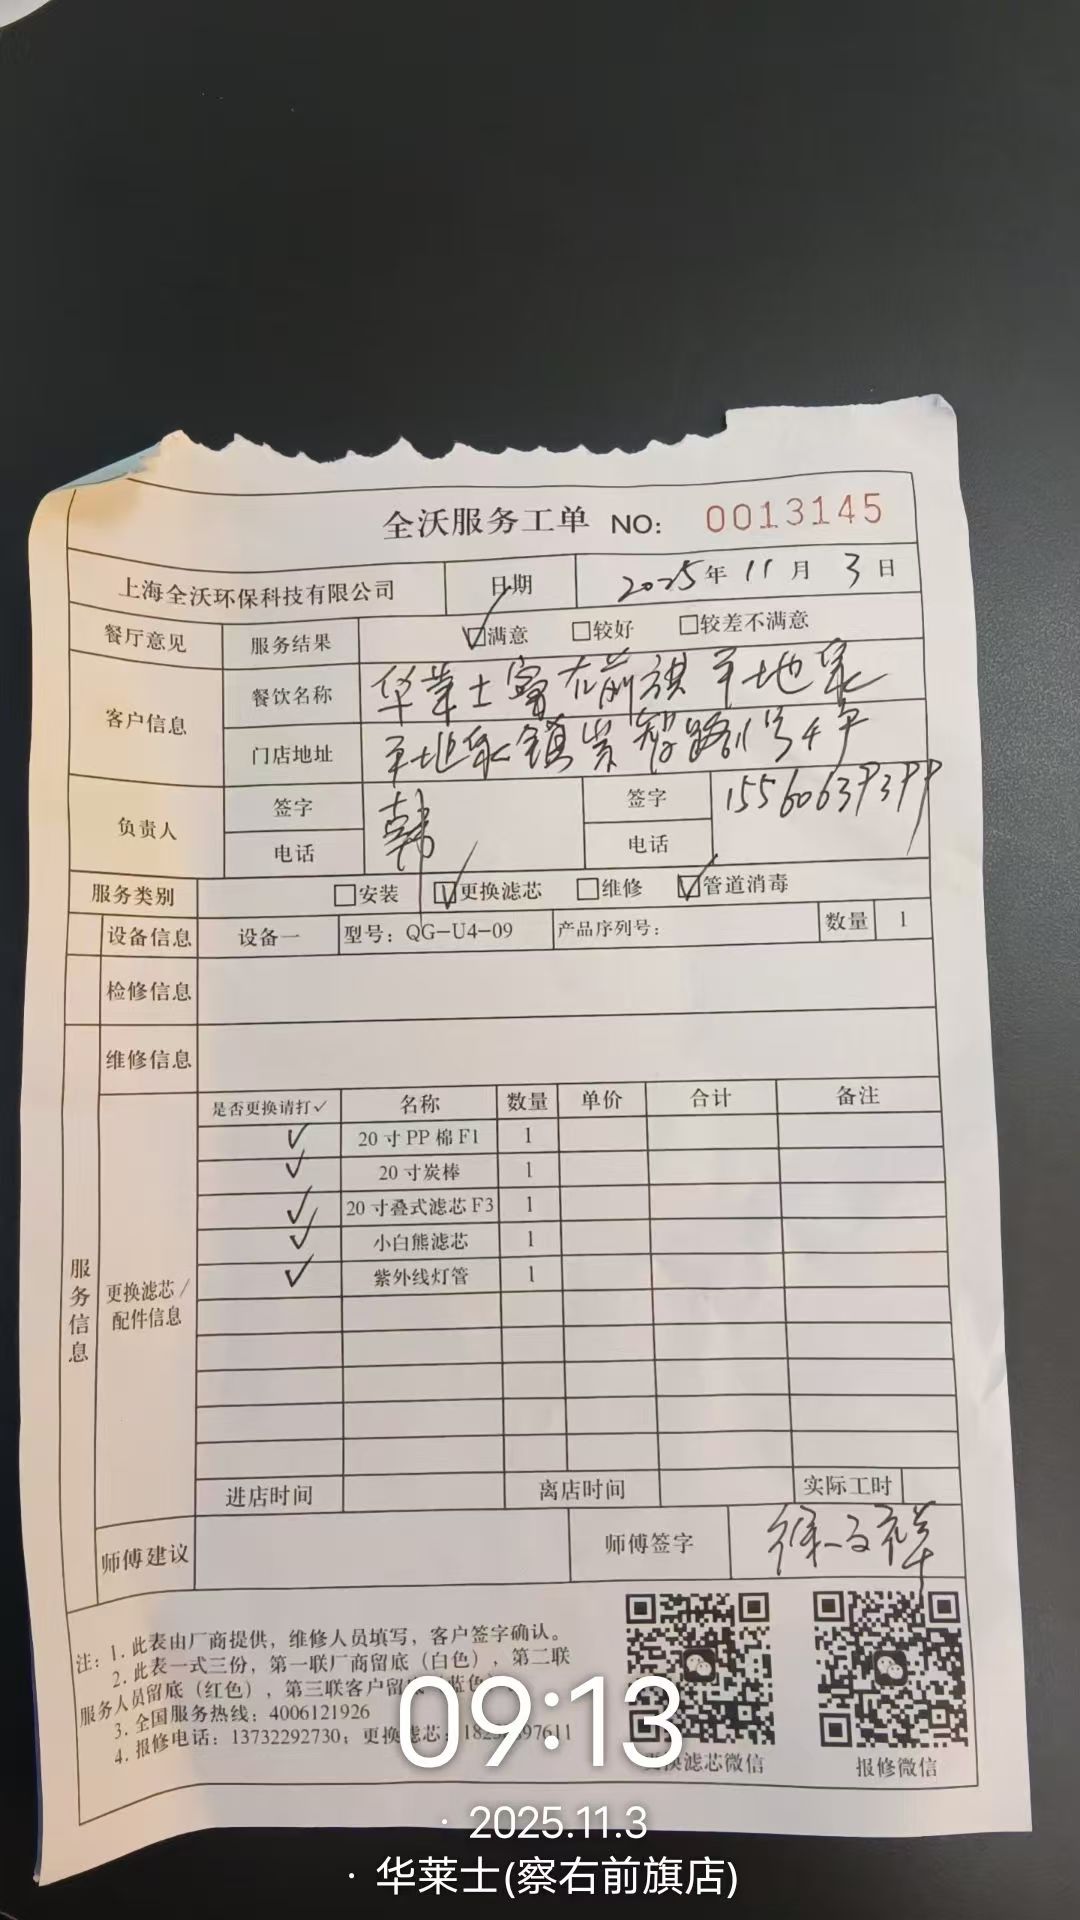 全沃服务工单 NO: 0013145
上海全沃环保科技有限公司 日期 2025年 11月 3日
餐厅意见 服务结果 ☑满意 □较好 □较差不满意
客户信息 餐饮名称 华莱士察右前旗平地泉
门店地址 平地泉镇 路1号4
负责人 签字 韩 签字 15560639399
电话 电话
服务类别 □安装 ☑更换滤芯 □维修 ☑管道消毒
设备信息 设备一 型号：QG-U4-09 产品序列号： 数量 1
检修信息
维修信息
服务信息
更换滤芯/
配件信息
是否更换请打✓ 名称 数量 单价 合计 备注
✓ 20寸PP棉F1 1
✓ 20寸炭棒 1
✓ 20寸叠式滤芯F3 1
✓ 小白熊滤芯 1
✓ 紫外线灯管 1
进店时间 离店时间 实际工时
师傅建议 师傅签字
注：1. 此表由厂商提供，维修人员填写，客户签字确认。
2. 此表一式三份，第一联厂商留底（白色），第二联
服务人员留底（红色），第三联客户留
3. 全国服务热线：4006121926
4. 报修电话：13732292730；更换滤芯：
更换滤芯微信 报修微信
09:13
· 2025.11.3
· 华莱士(察右前旗店)